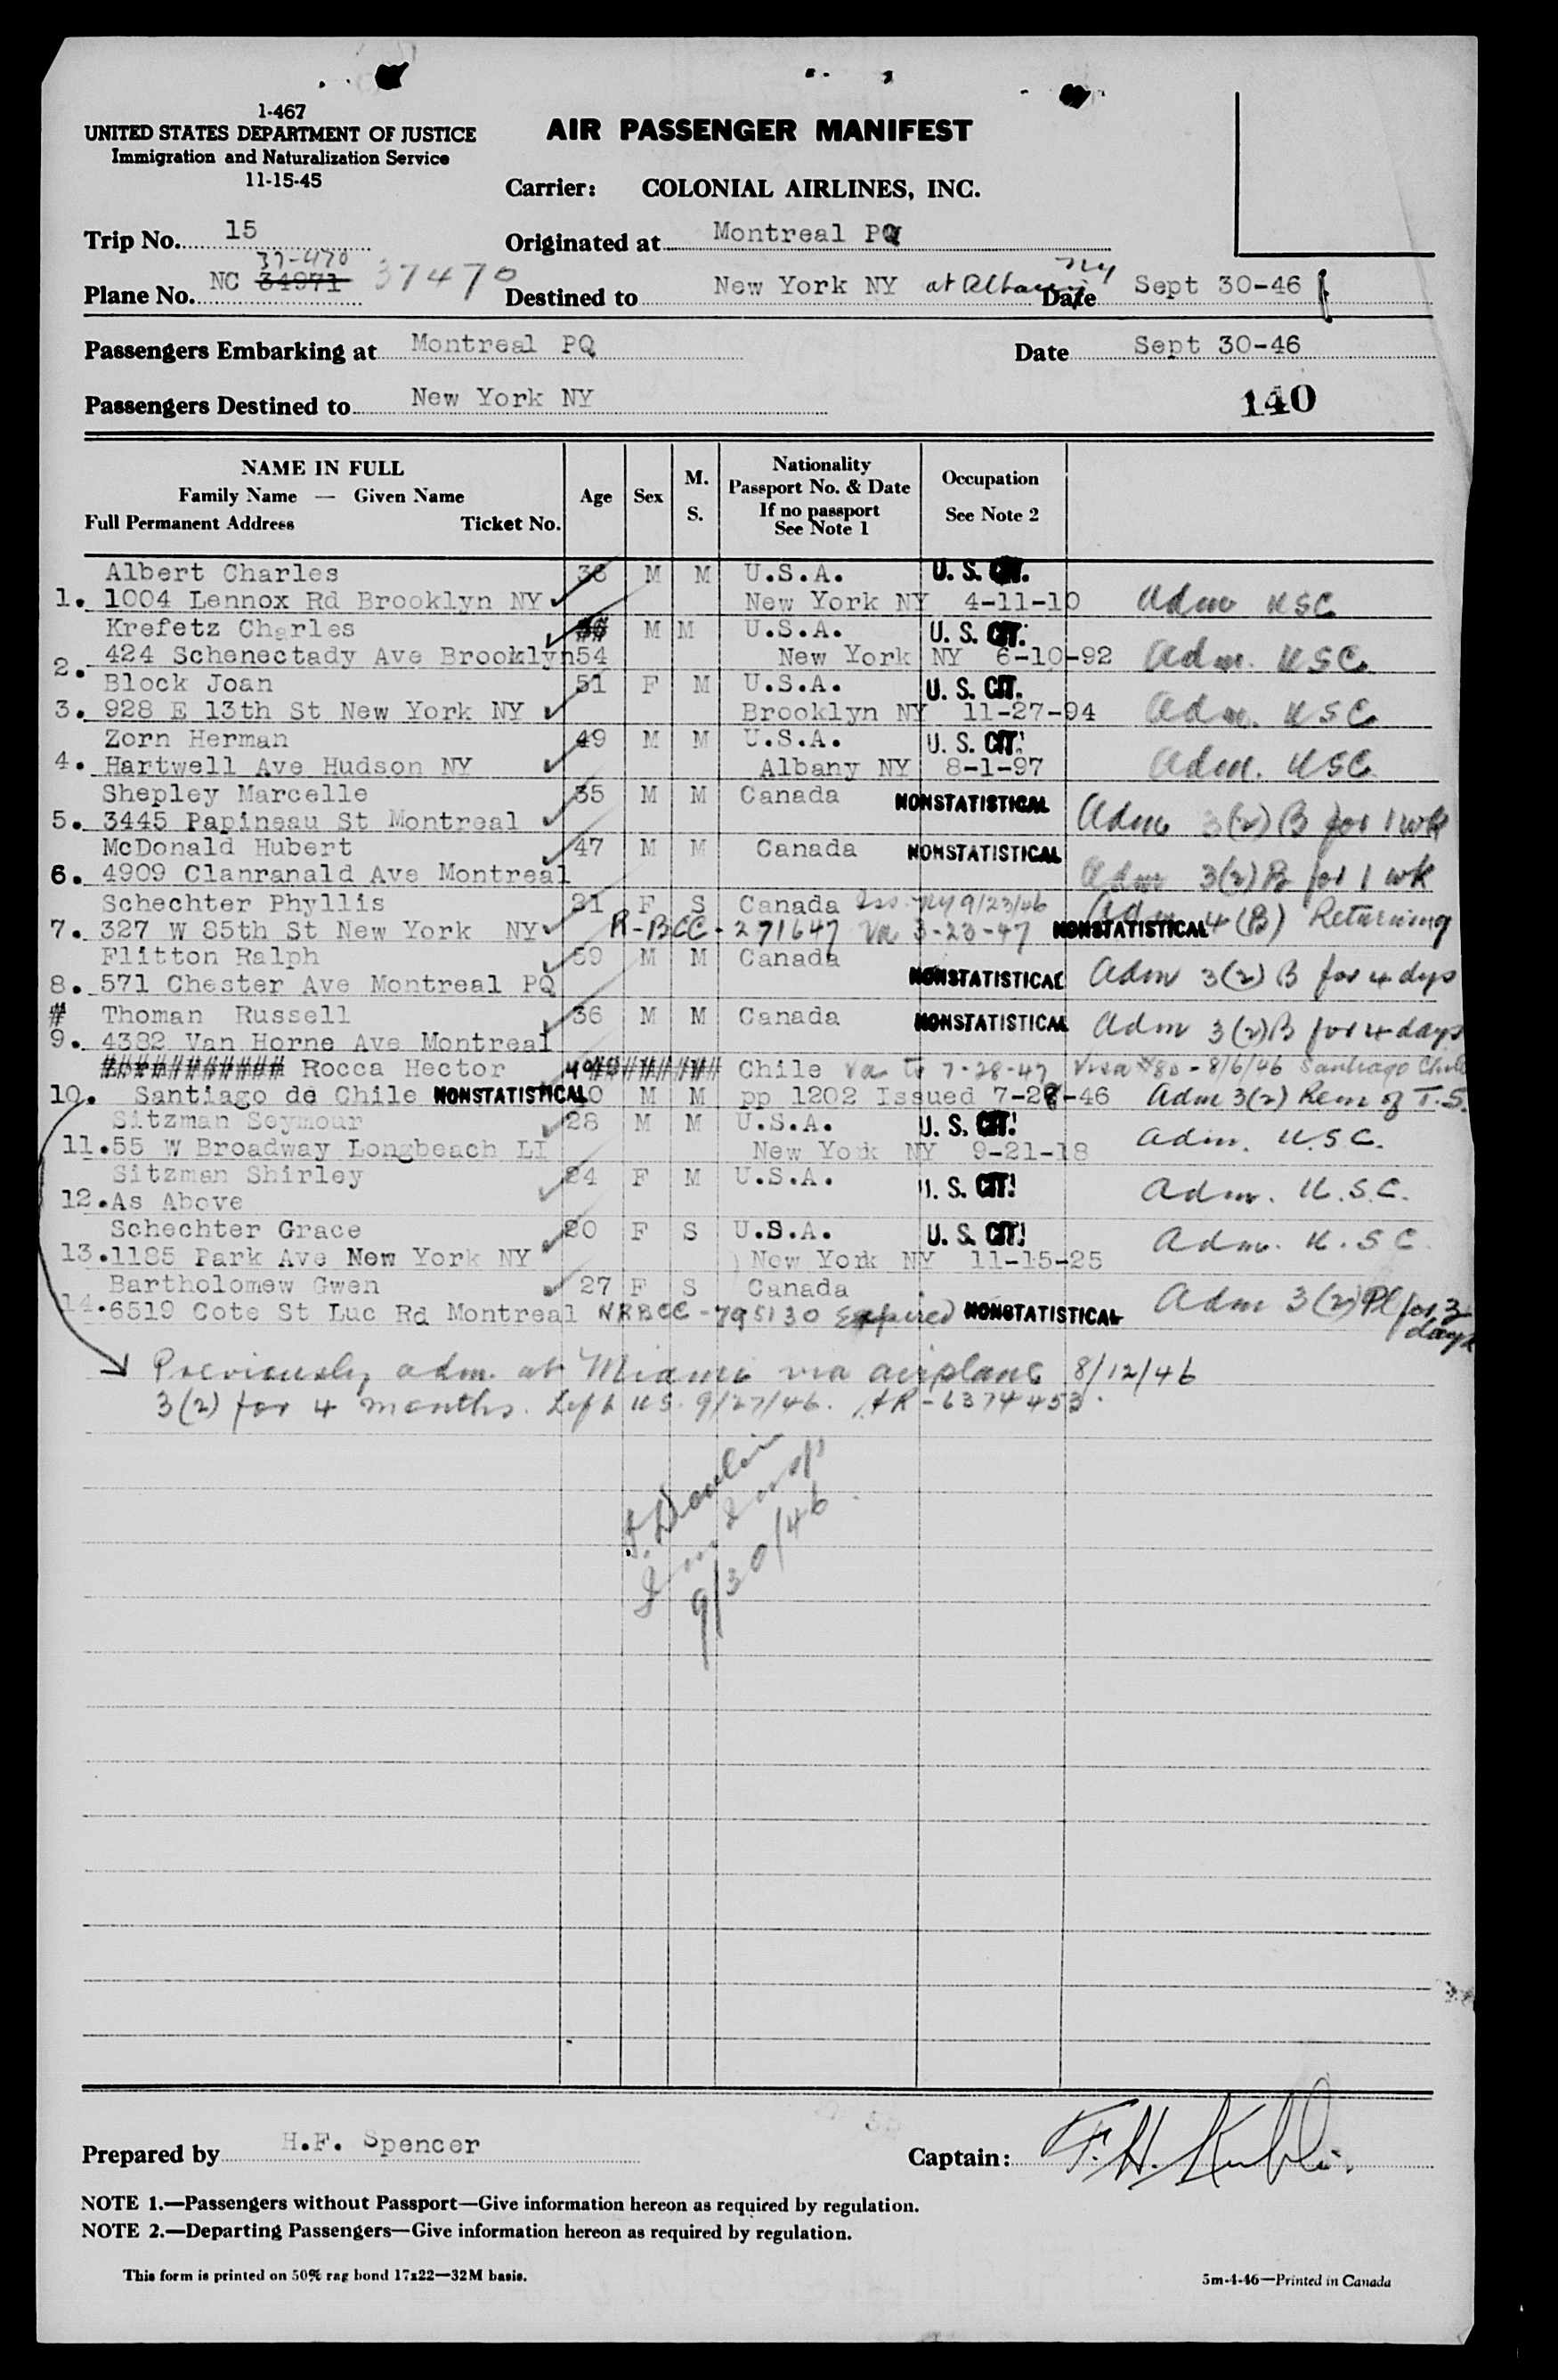 1-467
UNITED STATES DEPARTMENT OF JUSTICE
Immigration and Naturalization Service
11-15-45
AIR PASSENGER MANIFEST
Carrier: COLONIAL AIRLINES, INC.
Trip No. 15
Originated at Montreal PQ
37-470
Plane No. NC 34971 37470
Destined to New York NY at Albany NY Date Sept 30-46
Passengers Embarking at Montreal PQ Date Sept 30-46
Passengers Destined to New York NY
140
NAME IN FULL
Family Name — Given Name
Full Permanent Address Ticket No.
Age Sex M. S.
Nationality
Passport No. & Date
If no passport
See Note 1
Occupation
See Note 2
Albert Charles 36 M M U.S.A. U. S. CIT.
1. 1004 Lennox Rd Brooklyn NY New York NY 4-11-10 Adm USC
Krefetz Charles M M U.S.A. U. S. CIT.
2. 424 Schenectady Ave Brooklyn 54 New York NY 6-10-92 Adm. USC
Block Joan 51 F M U.S.A. U. S. CIT.
3. 928 E 13th St New York NY Brooklyn NY 11-27-94 Adm. USC
Zorn Herman 49 M M U.S.A. U. S. CIT.
4. Hartwell Ave Hudson NY Albany NY 8-1-97 Adm. USC
Shepley Marcelle 35 M M Canada NONSTATISTICAL
5. 3445 Papineau St Montreal Adm 3(2) B for 1 wk
McDonald Hubert 47 M M Canada NONSTATISTICAL
6. 4909 Clanranald Ave Montreal Adm 3(2) B for 1 wk
Schechter Phyllis 21 F S Canada Iss. NY 9/23/46
7. 327 W 85th St New York NY R-BCC-271647 Va 3-23-47 NONSTATISTICAL Adm 4(B) Returning
Flitton Ralph 59 M M Canada
8. 571 Chester Ave Montreal PQ NONSTATISTICAL Adm 3(2) B for 4 dys
# Thoman Russell 36 M M Canada NONSTATISTICAL
9. 4382 Van Horne Ave Montreal Adm 3(2) B for 4 days
Rocca Hector Chile Va to 7-28-47 Visa #80 - 8/6/46 Santiago Chile
10. Santiago de Chile NONSTATISTICAL 40 M M pp 1202 Issued 7-28-46 Adm 3(2) Rem of T.S.
Sitzman Seymour 28 M M U.S.A. U. S. CIT.
11. 55 W Broadway Longbeach LI New York NY 9-21-18 Adm. U.S.C.
Sitzman Shirley 24 F M U.S.A. U. S. CIT.
12. As Above Adm. U.S.C.
Schechter Grace 20 F S U.S.A. U. S. CIT.
13. 1185 Park Ave New York NY New York NY 11-15-25 Adm. U.S.C.
Bartholomew Gwen 27 F S Canada
14. 6519 Cote St Luc Rd Montreal NRBCC-795130 Expired NONSTATISTICAL Adm 3(2) Pl for 3 days
Previously adm. at Miami via airplane 8/12/46
3(2) for 4 months. Left US. 9/27/46. AR-6374453.
9/30/46
Prepared by H.F. Spencer
Captain: F.H.
NOTE 1.—Passengers without Passport—Give information hereon as required by regulation.
NOTE 2.—Departing Passengers—Give information hereon as required by regulation.
This form is printed on 50% rag bond 17x22—32M basis.
5m-4-46—Printed in Canada